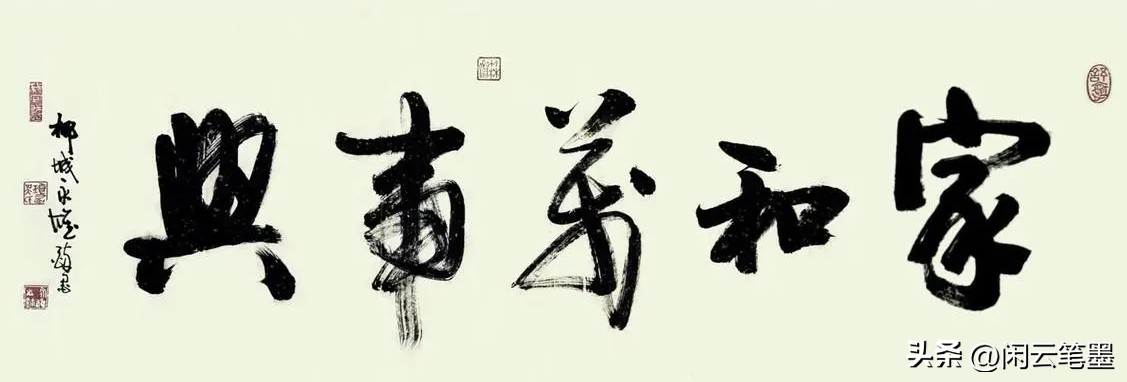 家和萬事興
柳城永

头条 @闲云笔墨